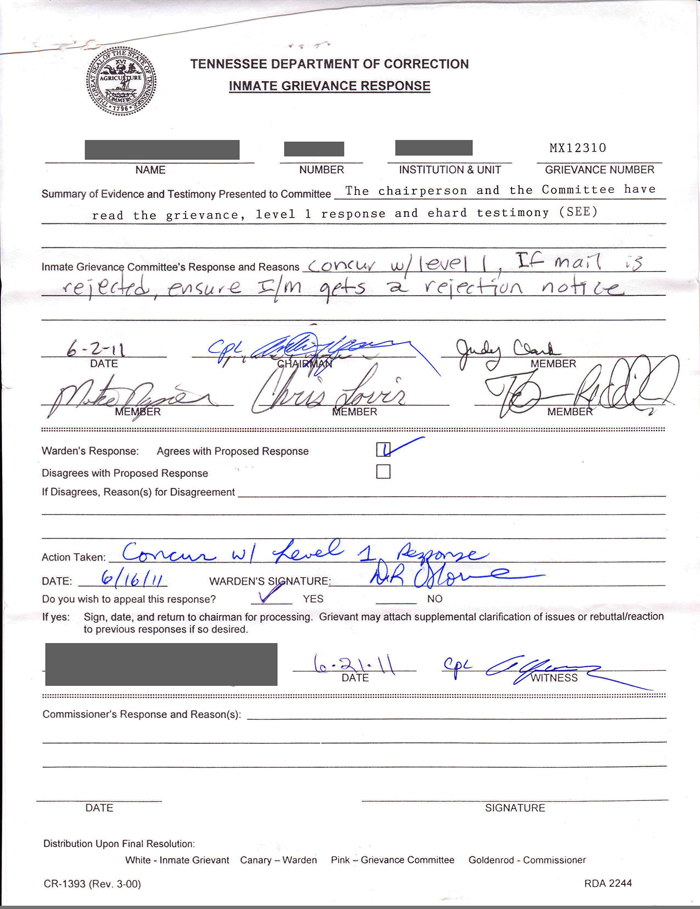 THE GREAT SEAL OF THE STATE OF TENNESSEE
XVI
AGRICULTURE
COMMERCE
1796
TENNESSEE DEPARTMENT OF CORRECTION
INMATE GRIEVANCE RESPONSE
MX12310
NAME NUMBER INSTITUTION & UNIT GRIEVANCE NUMBER
Summary of Evidence and Testimony Presented to Committee The chairperson and the Committee have
read the grievance, level 1 response and ehard testimony (SEE)
Inmate Grievance Committee's Response and Reasons concur w/ level 1, If mail is
rejected, ensure I/m gets a rejection notice
6-2-11 Cpl Judy Clark
DATE CHAIRMAN MEMBER
Mike Chris Lovin
MEMBER MEMBER MEMBER
Warden's Response: Agrees with Proposed Response
Disagrees with Proposed Response
If Disagrees, Reason(s) for Disagreement
Action Taken: Concur w/ Level 1 Response
DATE: 6/16/11 WARDEN'S SIGNATURE:
Do you wish to appeal this response? YES NO
If yes: Sign, date, and return to chairman for processing. Grievant may attach supplemental clarification of issues or rebuttal/reaction
to previous responses if so desired.
6-21-11 Cpl
DATE WITNESS
Commissioner's Response and Reason(s):
DATE SIGNATURE
Distribution Upon Final Resolution:
White - Inmate Grievant Canary – Warden Pink – Grievance Committee Goldenrod - Commissioner
CR-1393 (Rev. 3-00) RDA 2244